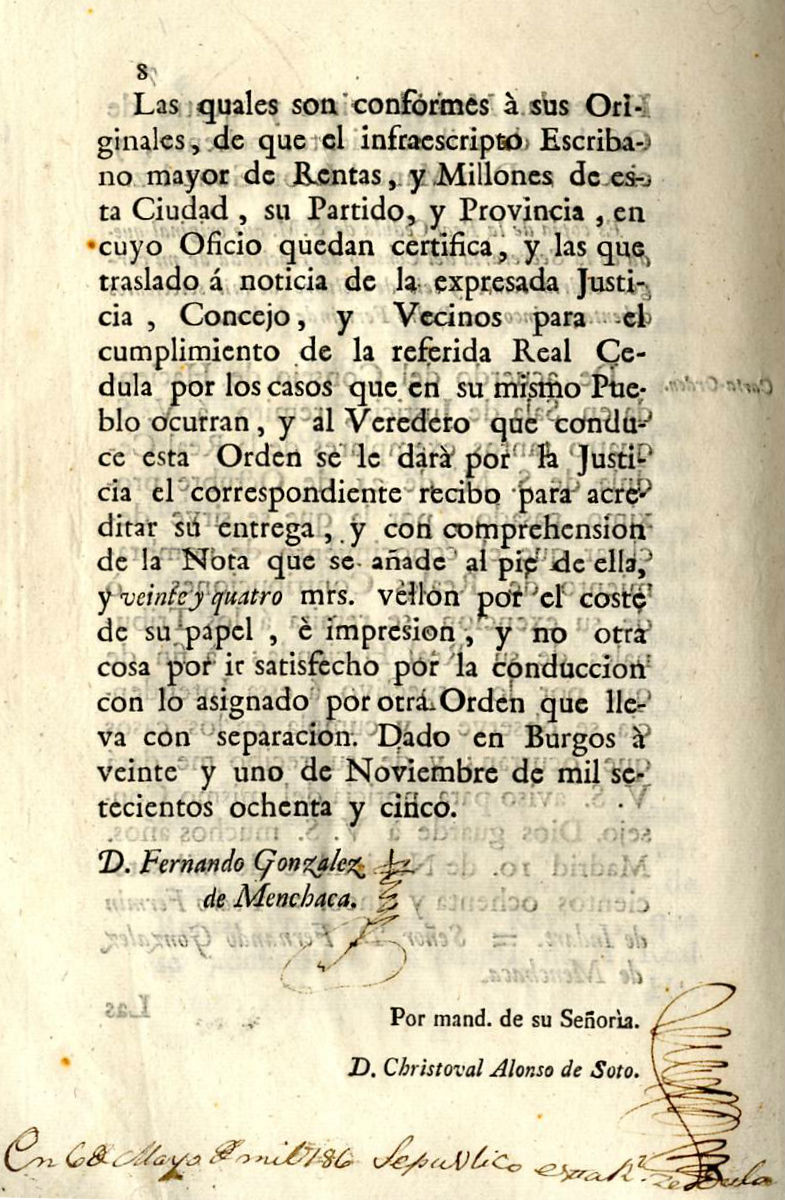 8
Las quales son conformes à sus Ori-
ginales, de que el infraescripto Escriba-
no mayor de Rentas, y Millones de es-
ta Ciudad, su Partido, y Provincia, en
cuyo Oficio quedan certifica, y las que
traslado á noticia de la expresada Justi-
cia, Concejo, y Vecinos para el
cumplimiento de la referida Real Ce-
dula por los casos que en su mismo Pue-
blo ocurran, y al Veredero que condu-
ce esta Orden se le darà por la Justi-
cia el correspondiente recibo para acre-
ditar su entrega, y con comprehension
de la Nota que se añade al pie de ella,
y veinte y quatro mrs. vellon por el coste
de su papel, è impresion, y no otra
cosa por ir satisfecho por la conduccion
con lo asignado por otra Orden que lle-
va con separacion. Dado en Burgos à
veinte y uno de Noviembre de mil se-
tecientos ochenta y cinco.
D. Fernando Gonzalez
de Menchaca.
Por mand. de su Señorìa.
D. Christoval Alonso de Soto.
En 6 de Mayo de mil 786 se publico esta Rl zedula